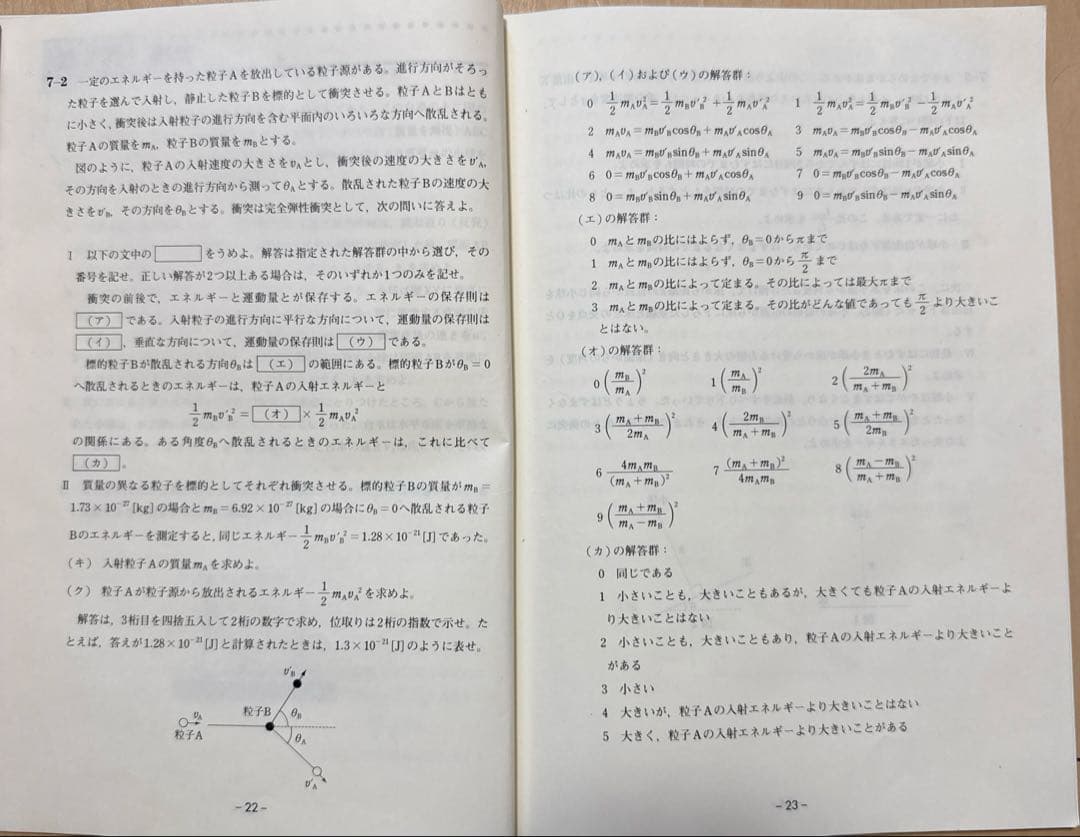 7-2 一定のエネルギーを持った粒子Aを放出している粒子源がある。進行方向がそろっ
た粒子を選んで入射し,静止した粒子Bを標的として衝突させる。粒子AとBはとも
に小さく,衝突後は入射粒子の進行方向を含む平面内のいろいろな方向へ散乱される。
粒子Aの質量をmA,粒子Bの質量をmBとする。
図のように,粒子Aの入射速度の大きさをvAとし,衝突後の速度の大きさをv'A,
その方向を入射のときの進行方向から測ってθAとする。散乱された粒子Bの速度の大
きさをv'B,その方向をθBとする。衝突は完全弾性衝突として,次の問いに答えよ。
I 以下の文中の をうめよ。解答は指定された解答群の中から選び,その
番号を記せ。正しい解答が2つ以上ある場合は,そのいずれか1つのみを記せ。
衝突の前後で,エネルギーと運動量とが保存する。エネルギーの保存則は
(ア) である。入射粒子の進行方向に平行な方向について,運動量の保存則は
(イ) ,垂直な方向について,運動量の保存則は (ウ) である。
標的粒子Bが散乱される方向θBは (エ) の範囲にある。標的粒子BがθB=0
へ散乱されるときのエネルギーは,粒子Aの入射エネルギーと
1/2 mBv'B² = (オ) × 1/2 mAvA²
の関係にある。ある角度θBへ散乱されるときのエネルギーは,これに比べて
(カ) 。
II 質量の異なる粒子を標的としてそれぞれ衝突させる。標的粒子Bの質量がmB=
1.73×10⁻²⁷[kg]の場合とmB=6.92×10⁻²⁷[kg]の場合にθB=0へ散乱される粒子
Bのエネルギーを測定すると,同じエネルギー1/2 mBv'B²=1.28×10⁻²¹[J]であった。
(キ) 入射粒子Aの質量mAを求めよ。
(ク) 粒子Aが粒子源から放出されるエネルギー1/2 mAvA²を求めよ。
解答は,3桁目を四捨五入して2桁の数字で求め,位取りは2桁の指数で示せ。た
とえば,答えが1.28×10⁻²¹[J]と計算されたときは,1.3×10⁻²¹[J]のように表せ。
v'B
vA
粒子B
θB
粒子A
θA
v'A
-22-
(ア),(イ)および(ウ)の解答群:
0 1/2 mAvA²=1/2 mBv'B²+1/2 mAv'A² 1 1/2 mAvA²=1/2 mBv'B²-1/2 mAv'A²
2 mAvA=mBv'BcosθB+mAv'AcosθA 3 mAvA=mBv'BcosθB-mAv'AcosθA
4 mAvA=mBv'BsinθB+mAv'AsinθA 5 mAvA=mBv'BsinθB-mAv'AsinθA
6 0=mBv'BcosθB+mAv'AcosθA 7 0=mBv'BcosθB-mAv'AcosθA
8 0=mBv'BsinθB+mAv'AsinθA 9 0=mBv'BsinθB-mAv'AsinθA
(エ)の解答群:
0 mAとmBの比にはよらず,θB=0からπまで
1 mAとmBの比にはよらず,θB=0からπ/2まで
2 mAとmBの比によって定まる。その比によっては最大πまで
3 mAとmBの比によって定まる。その比がどんな値であってもπ/2より大きいこ
とはない。
(オ)の解答群:
0 (mB/mA)² 1 (mA/mB)² 2 (2mA/(mA+mB))²
3 ((mA+mB)/2mA)² 4 (2mB/(mA+mB))² 5 ((mA+mB)/2mB)²
6 4mAmB/(mA+mB)² 7 (mA+mB)²/4mAmB 8 ((mA-mB)/(mA+mB))²
9 ((mA+mB)/(mA-mB))²
(カ)の解答群:
0 同じである
1 小さいことも,大きいこともあるが,大きくても粒子Aの入射エネルギーよ
り大きいことはない
2 小さいことも,大きいこともあり,粒子Aの入射エネルギーより大きいこと
がある
3 小さい
4 大きいが,粒子Aの入射エネルギーより大きいことはない
5 大きく,粒子Aの入射エネルギーより大きいことがある
-23-